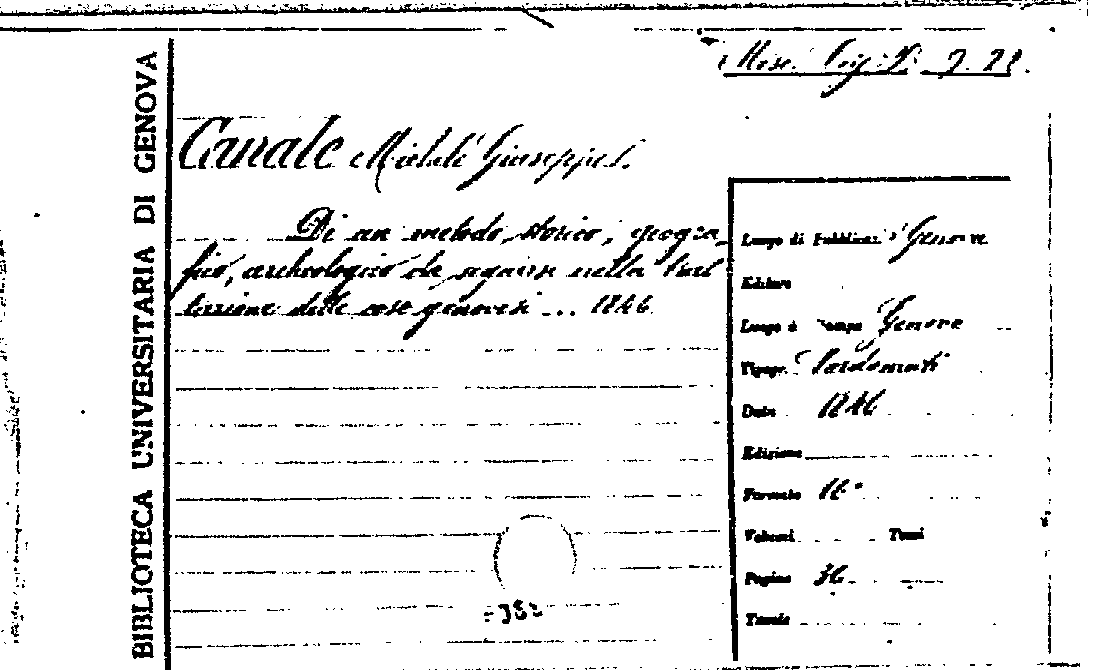 BIBLIOTECA UNIVERSITARIA DI GENOVA
Misc. Lig.
Canale Michele Giuseppe
Di un metodo storico, geogra
fico, archeologico da seguirsi nella trat
tazione delle cose genovesi ... 1846
Luogo di Pubblicaz. Genova
Editore
Luogo di Stampa Genova
Tipogr.
Data 1846
Edizione
Formato 16°
Volumi Tomi
Pagine 36
Tavole